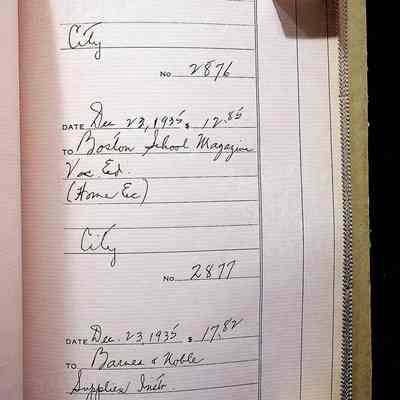 City
No 2876
DATE Dec 23, 1935 $ 12.85
TO Boston School Magazine
Voc. Ed.
(Home Ec)
City
No 2877
DATE Dec. 23, 1935 $ 17.82
TO Barnes & Noble
Supplies / Instr.